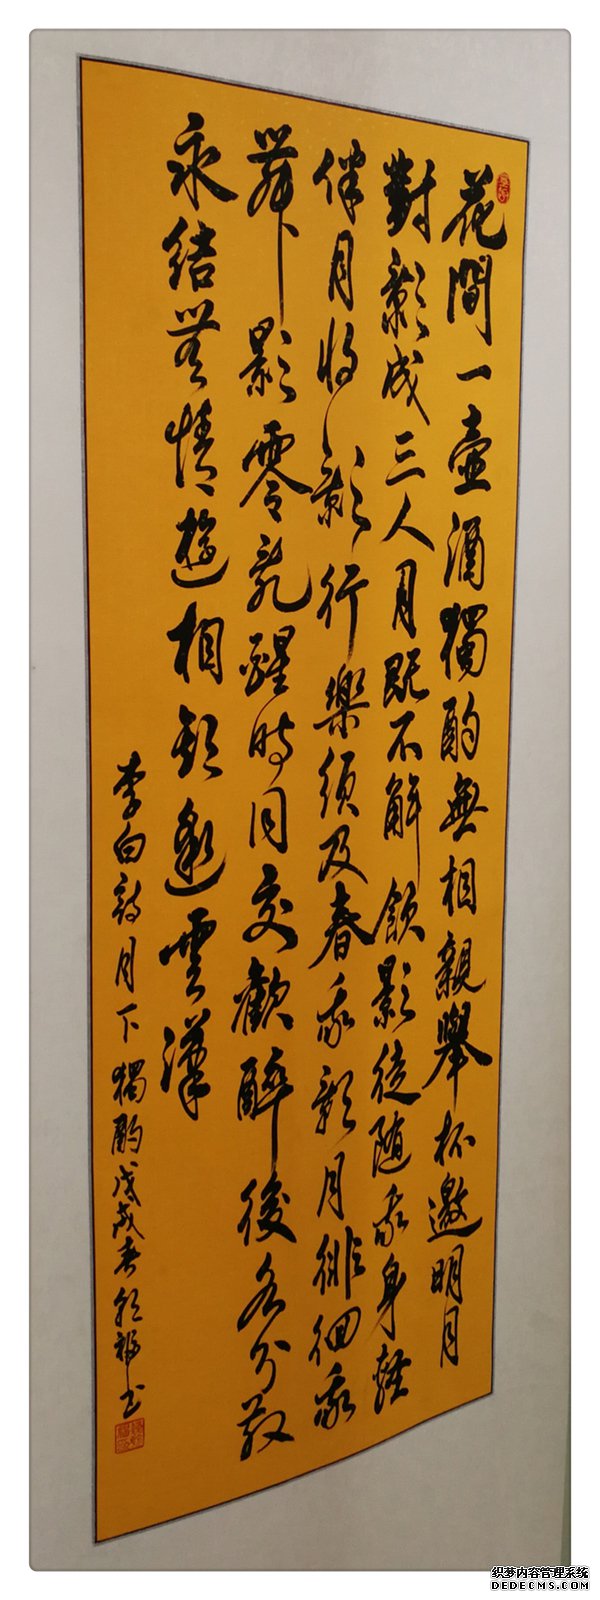 花間一壺酒獨酌無相親舉杯邀明月
對影成三人月既不解飲影徒隨我身暫
伴月將影行樂須及春我歌月徘徊我
舞影零亂醒時同交歡醉後各分散
永結無情遊相期邈雲漢
李白詩月下獨酌戊戌春书
织梦内容管理系统
DEDECMS.COM